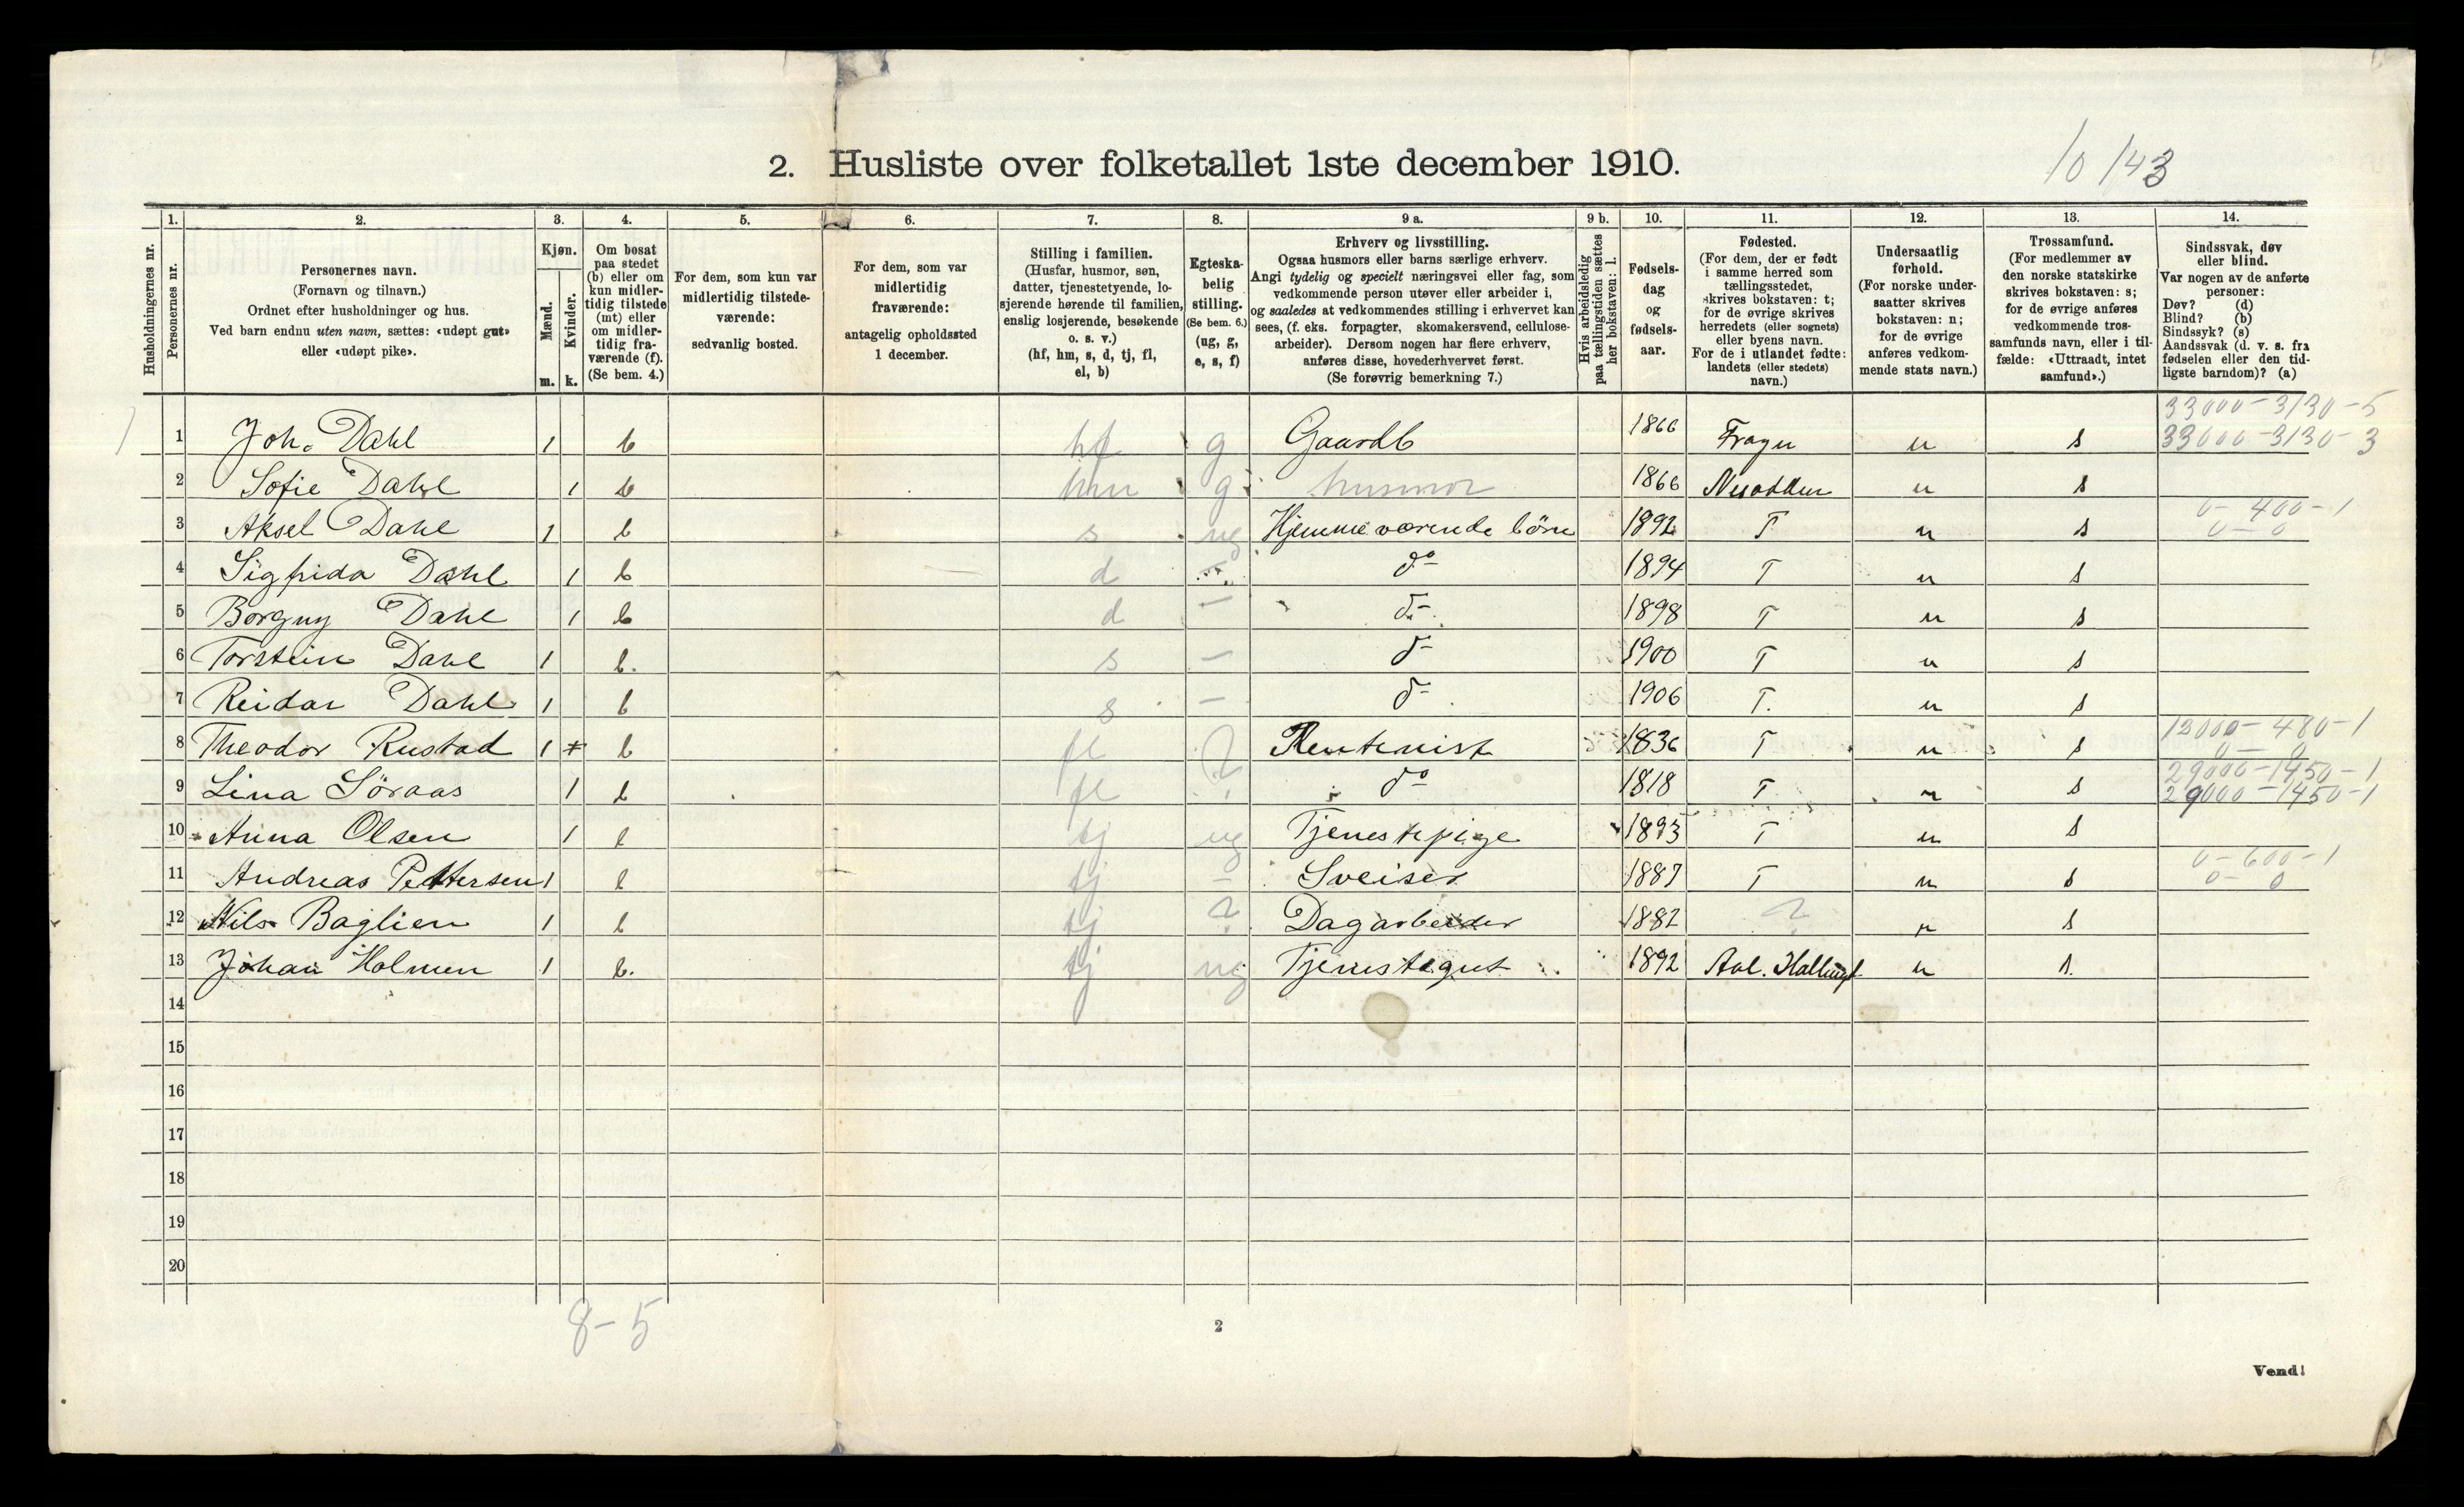 10/143
2. Husliste over folketallet 1ste december 1910.
1. 2. 3. 4. 5. 6. 7. 8. 9 a. 9 b. 10. 11. 12. 13. 14.
Husholdningernes nr.
Personernes nr.
Personernes navn.
(Fornavn og tilnavn.)
Ordnet efter husholdninger og hus.
Ved barn endnu uten navn, sættes: «udøpt gut»
eller «udøpt pike».
Kjøn.
Mænd.
Kvinder.
m. k.
Om bosat
paa stedet
(b) eller om
kun midler-
tidig tilstede
(mt) eller
om midler-
tidig fra-
værende (f).
(Se bem. 4.)
For dem, som kun var
midlertidig tilstede-
værende:
sedvanlig bosted.
For dem, som var
midlertidig
fraværende:
antagelig opholdssted
1 december.
Stilling i familien.
(Husfar, husmor, søn,
datter, tjenestetyende, lo-
sjerende hørende til familien,
enslig losjerende, besøkende
o. s. v.)
(hf, hm, s, d, tj, fl,
el, b)
Egteska-
belig
stilling.
(Se bem. 6.)
(ug, g,
e, s, f)
Erhverv og livsstilling.
Ogsaa husmors eller barns særlige erhverv.
Angi tydelig og specielt næringsvei eller fag, som
vedkommende person utøver eller arbeider i,
og saaledes at vedkommendes stilling i erhvervet kan
sees, (f. eks. forpagter, skomakersvend, cellulose-
arbeider). Dersom nogen har flere erhverv,
anføres disse, hovederhvervet først.
(Se forøvrig bemerkning 7.)
Hvis arbeidsledig
paa tællingstiden sættes
her bokstaven: l.
Fødsels-
dag
og
fødsels-
aar.
Fødested.
(For dem, der er født
i samme herred som
tællingsstedet,
skrives bokstaven: t;
for de øvrige skrives
herredets (eller sognets)
eller byens navn.
For de i utlandet fødte:
landets (eller stedets)
navn.)
Undersaatlig
forhold.
(For norske under-
saatter skrives
bokstaven: n;
for de øvrige
anføres vedkom-
mende stats navn.)
Trossamfund.
(For medlemmer av
den norske statskirke
skrives bokstaven: s;
for de øvrige anføres
vedkommende tros-
samfunds navn, eller i til-
fælde: «Uttraadt, intet
samfund».)
Sindssvak, døv
eller blind.
Var nogen av de anførte
personer:
Døv? (d)
Blind? (b)
Sindssyk? (s)
Aandssvak (d. v. s. fra
fødselen eller den tid-
ligste barndom)? (a)
33000-3130-5
1 1 Joh. Dahl 1 b hf g Gaardb 1866 Frogn n s 33000-3130-3
2 Sofie Dahl 1 b hm g husmor 1866 Nesodden n s
3 Aksel Dahl 1 b s ug Hjemmeværende börn 1892 T n s 0-400-1
0-0
4 Sigfrida Dahl 1 b d - do 1894 T n s
5 Borgny Dahl 1 b d - do 1898 T n s
6 Torstein Dahl 1 b. s - do 1900 T n s
7 Reidar Dahl 1 b s - do 1906 T. n s
8 Theodor Rustad 1 b fl ? Rentenist 1836 T n s 12000-480-1
0-0
9 Lina Söraas 1 b fl ? do 1818 T n s 29000-1450-1
29000-1450-1
10 Anna Olsen 1 b tj ug Tjenestepige 1893 T n s
11 Andreas Pettersen 1 b tj - Sveiser 1887 T n s 0-600-1
0-0
12 Nils Baglien 1 b tj ? Dagarbeider 1882 ? n s
13 Johan Holmen 1 b. tj ug Tjenestegut 1892 Aal. Hallingd n s.
14
15
16
17
18
19
20
8-5
2
Vend!